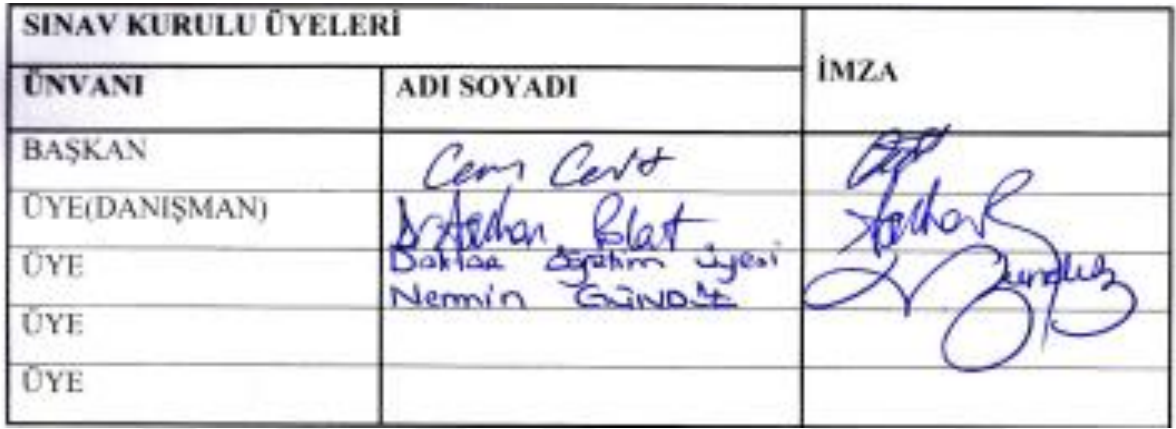 SINAV KURULU ÜYELERİ
ÜNVANI ADI SOYADI İMZA
BAŞKAN Cem
ÜYE(DANIŞMAN) Polat
ÜYE Doktor Öğretim Üyesi
Nermin GÜNDÜZ
ÜYE
ÜYE